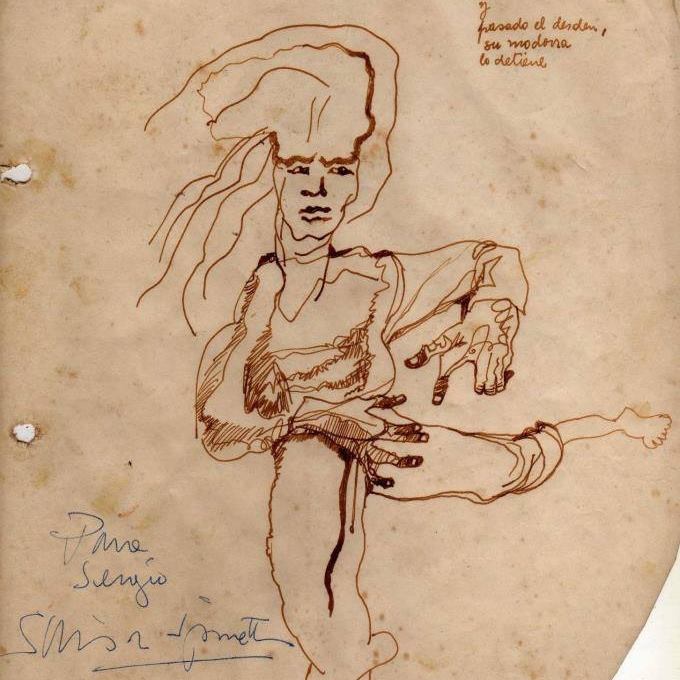 y
pasado el desden,
su modorra
lo detiene
Para
Sergio